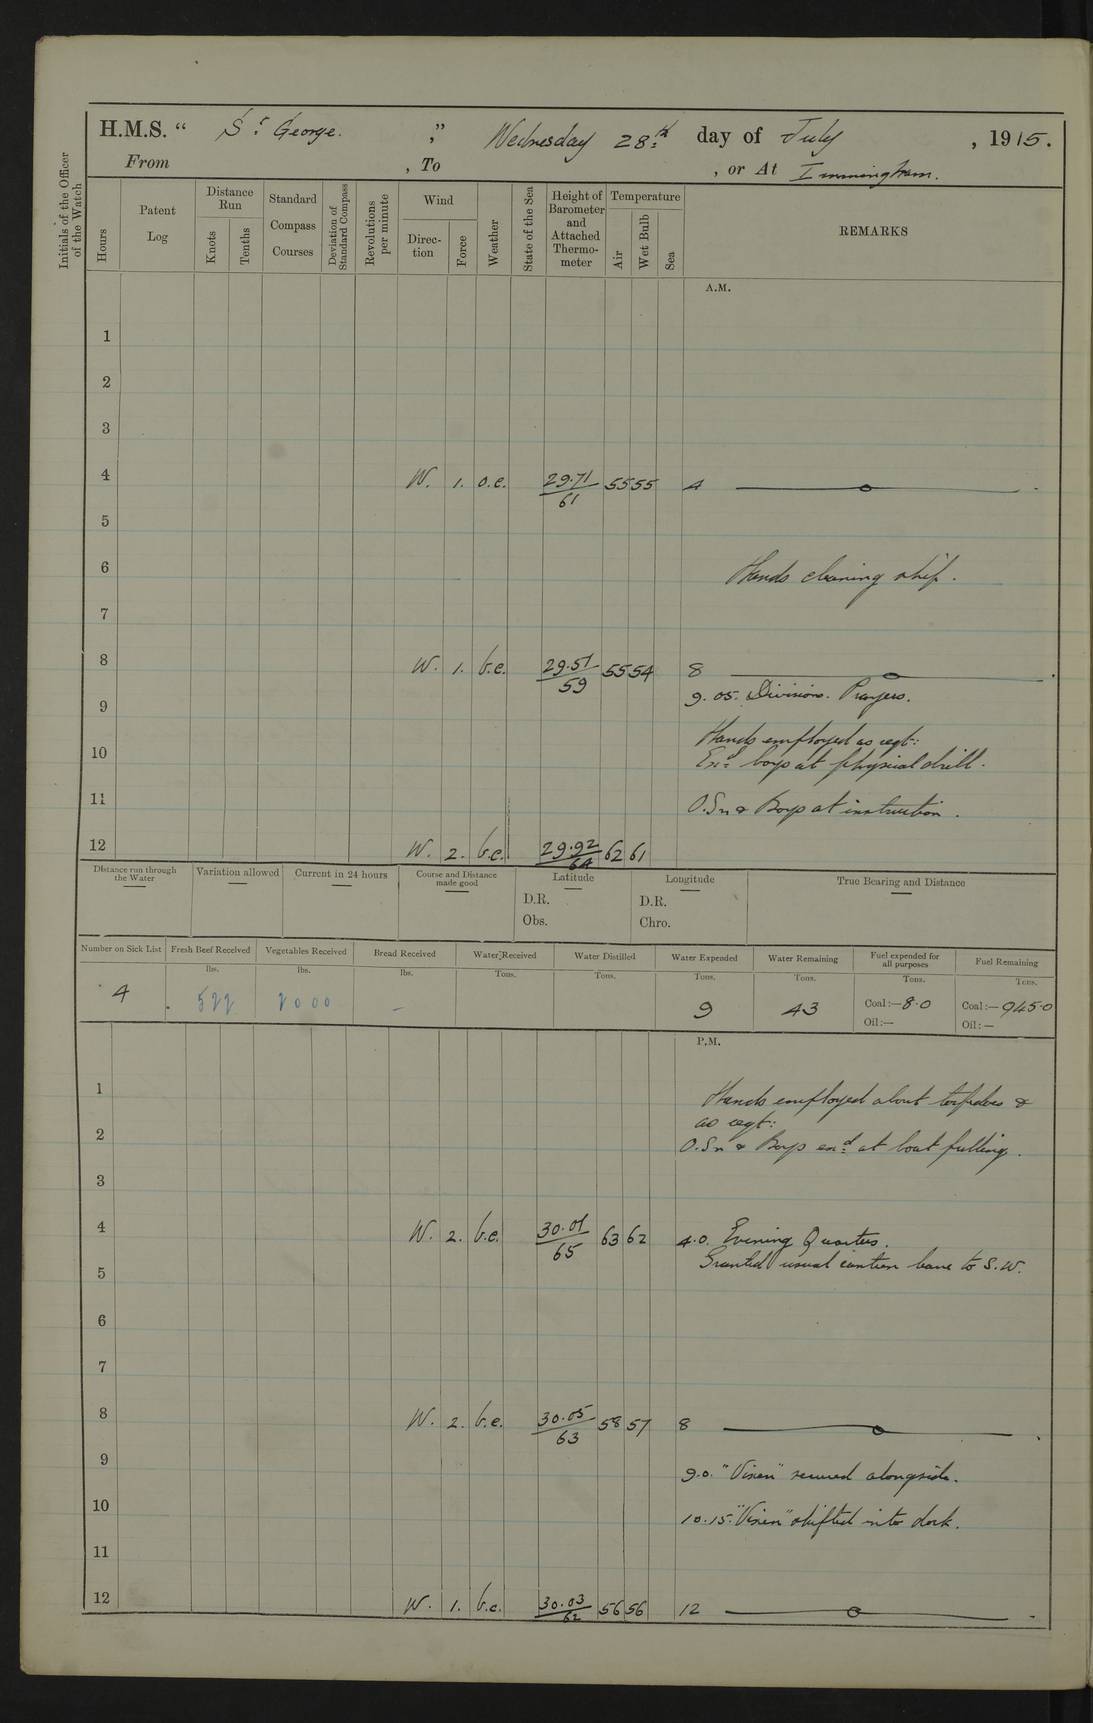 H.M.S. “ St George. ,” Wednesday 28th day of July , 1915.
From , To , or At Immingham.
Initials of the Officer of the Watch
Hours
Patent Log
Distance Run
Knots
Tenths
Standard Compass Courses
Deviation of Standard Compass
Revolutions per minute
Wind
Direc-tion
Force
Weather
State of the Sea
Height of Barometer and Attached Thermo-meter
Temperature
Air
Wet Bulb
Sea
REMARKS
A.M.
1
2
3
4 W. 1. o.c. 29.71/61 55 55 4
5
6 Hands cleaning ship.
7
8 W. 1. b.c. 29.51/59 55 54 8
9 9.05. Divisions. Prayers.
Hands employed as reqt:
10 End boys at physical drill.
11 O.Sn & Boys at instruction.
12 W. 2. b.c. 29.92/64 62 61
Distance run through the Water
Variation allowed
Current in 24 hours
Course and Distance made good
Latitude
D.R.
Obs.
Longitude
D.R.
Chro.
True Bearing and Distance
Number on Sick List Fresh Beef Received Vegetables Received Bread Received Water Received Water Distilled Water Expended Water Remaining Fuel expended for all purposes Fuel Remaining
lbs. lbs. lbs. Tons. Tons. Tons. Tons. Tons. Tons.
4 522 2000 – 9 43 Coal:—8.0 Coal:—945.0
Oil:— Oil:—
P.M.
1 Hands employed about torpedoes &
as reqt:
2 O.Sn & Boys exd at boat pulling.
3
4 W. 2. b.c. 30.01/65 63 62 4.0. Evening Quarters.
Granted usual canteen leave to S.W.
5
6
7
8 W. 2. b.c. 30.05/63 58 57 8
9 9.0. "Vixen" secured alongside.
10 10.15. "Vixen" shifted into dock.
11
12 W. 1. b.c. 30.03/62 56 56 12